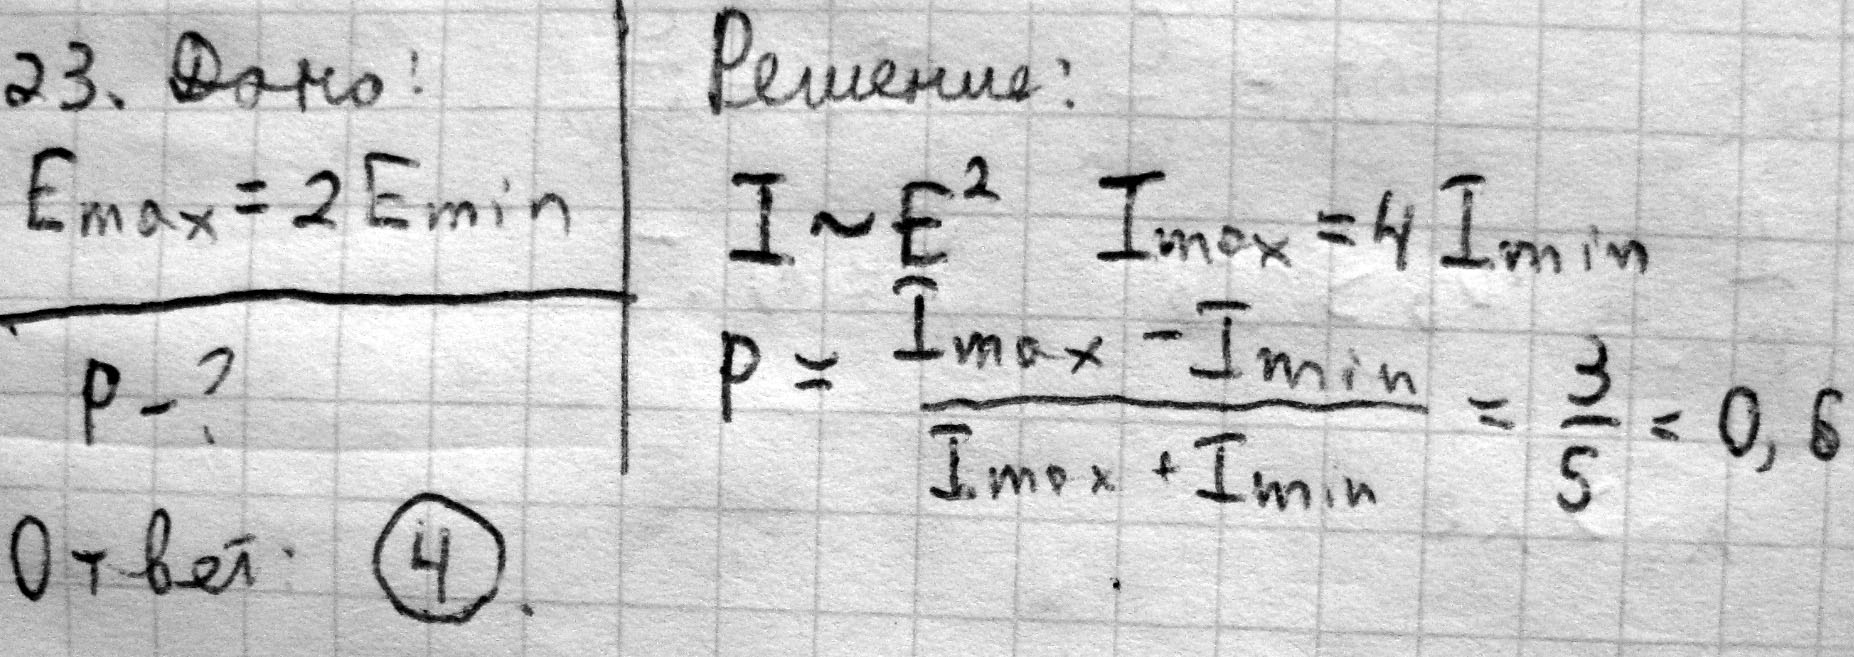 23. Дано:
Emax = 2 Emin
P - ?
Ответ: 4.
Решение:
I ~ E² Imax = 4 Imin
P = (Imax - Imin) / (Imax + Imin) = 3/5 = 0,6